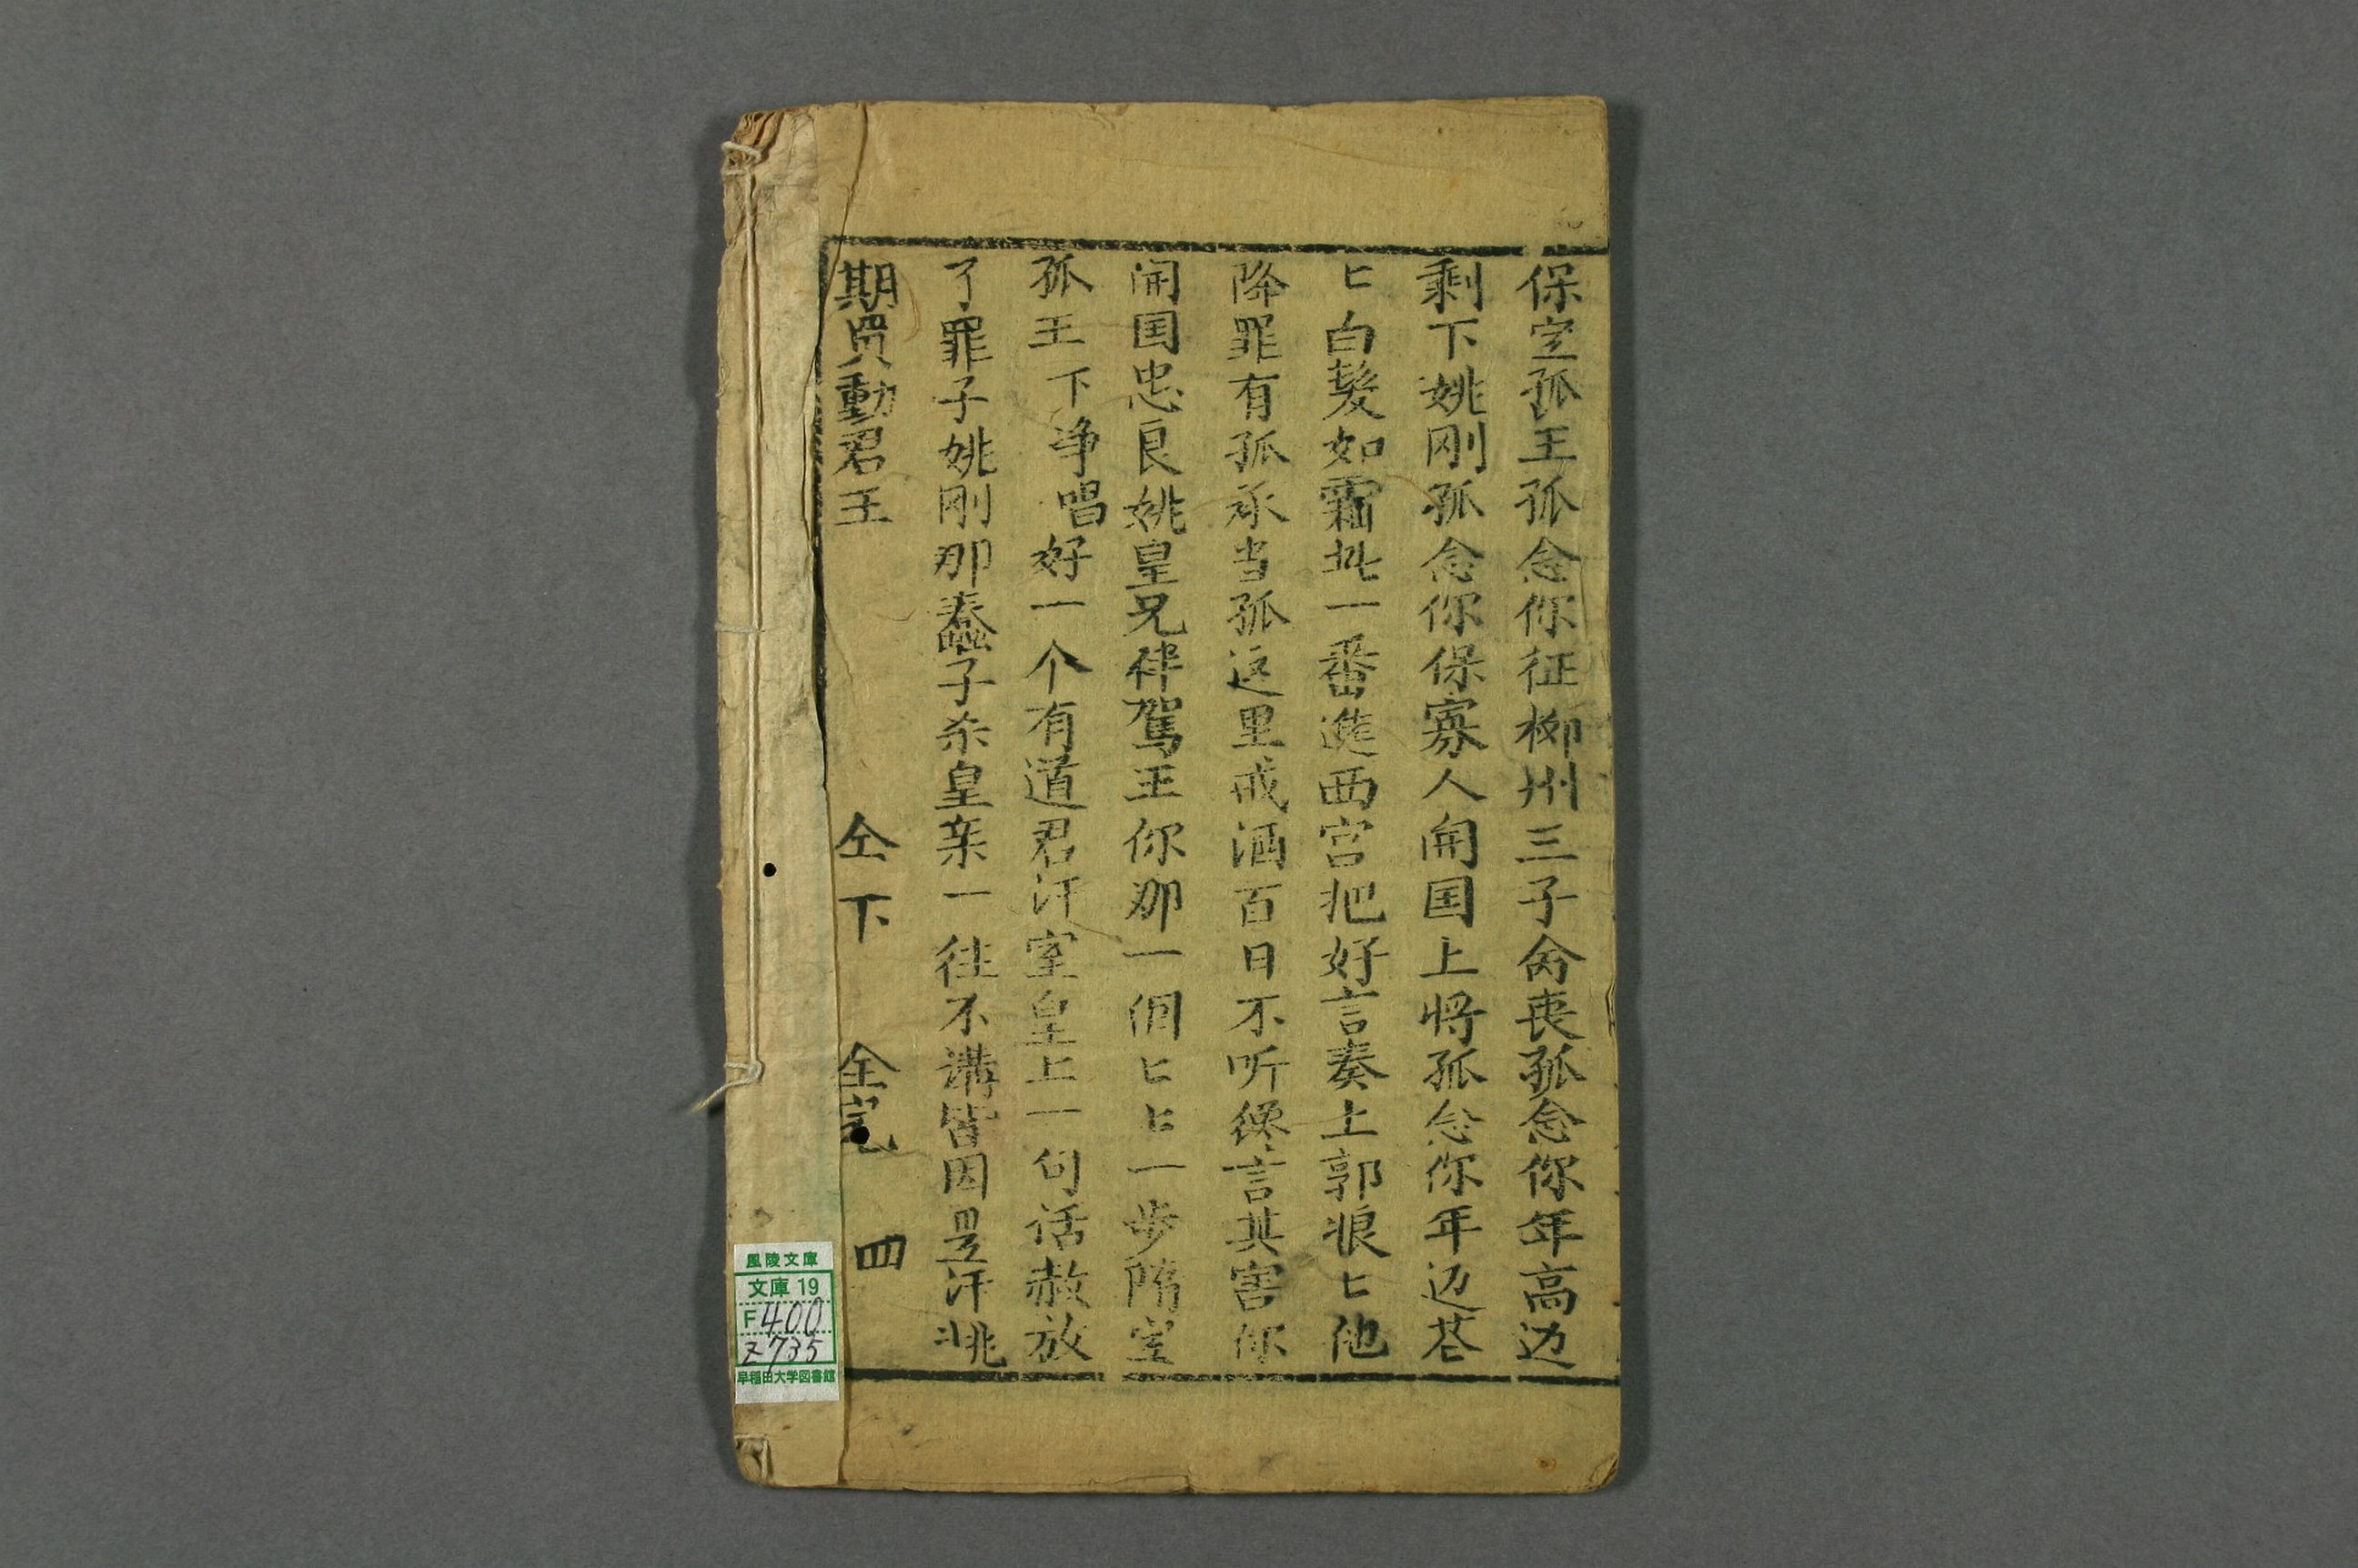 保定孤王孤念你征柳州三子命丧孤念你年高边
剩下姚刚孤念你保寡人闹国上将孤念你年迈苍
匕白髮如霜此一番進西宫把好言奏上郭娘匕他
降罪有孤承当孤这里戒酒百日不听谗言其害你
闹国忠良姚皇兄伴驾王你那一個匕上一步隋定
孤王下净唱好一个有道君汗室皇上一句话赦放
了罪子姚刚那蠢子杀皇亲一往不溝皆因是汗姚
期買動君王 仝下 全完 四
風陵文庫
文庫 19
F400
Z735
早稲田大学図書館